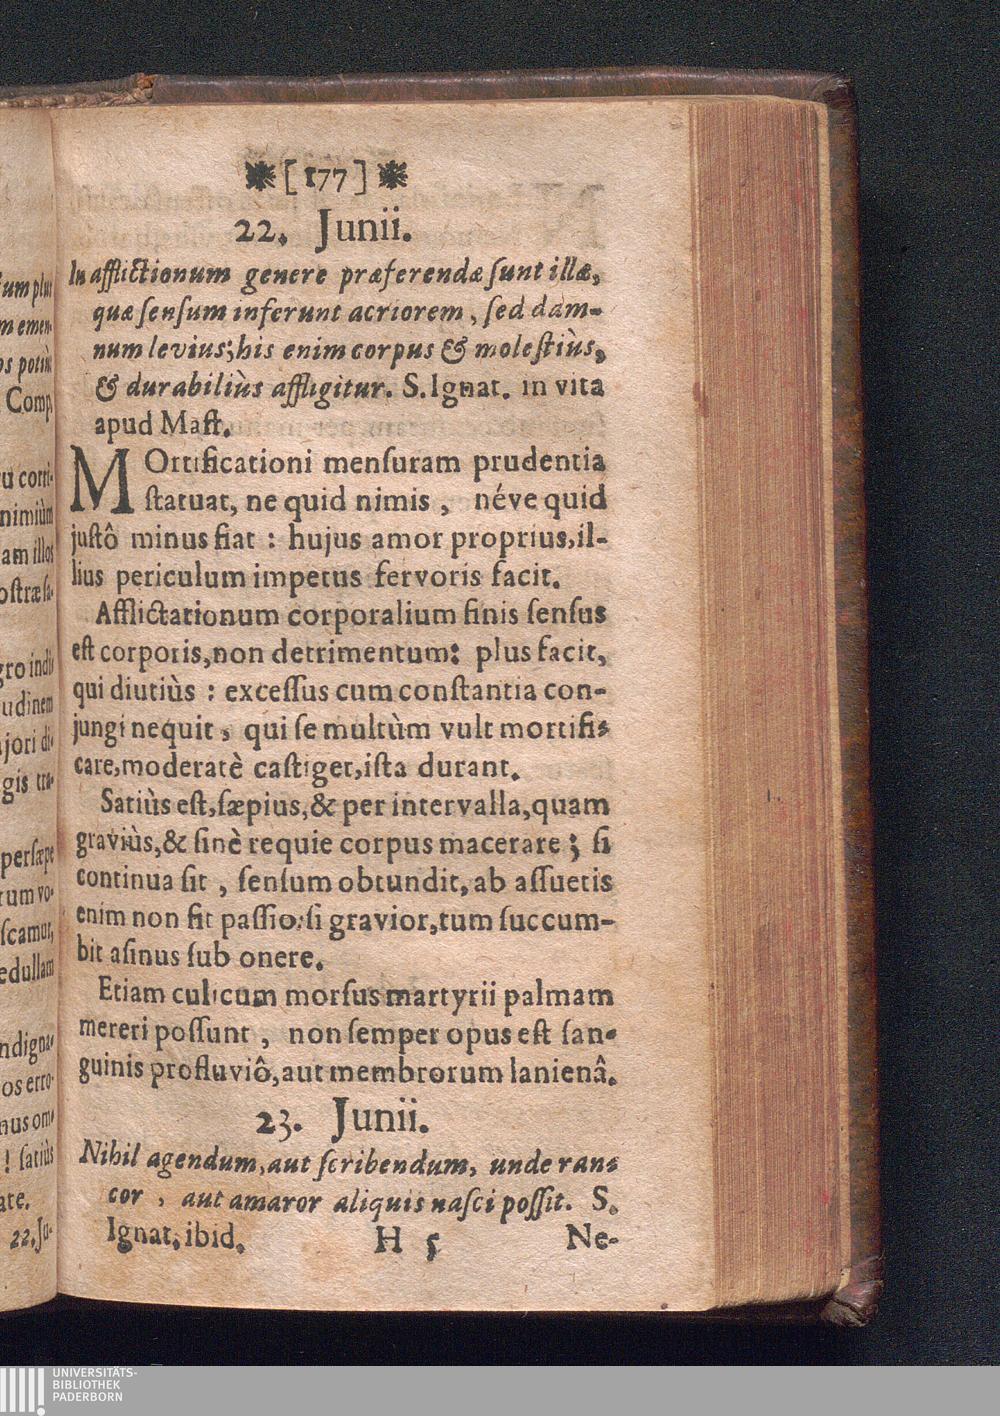 [177]
22. Junii.
In afflictionum genere præferendæ ſunt illæ,
quæ ſenſum inferunt acriorem, ſed dam-
num levius; his enim corpus & moleſtiùs,
& durabiliùs affligitur. S. Ignat. in vita
apud Maff.
MOrtificationi menſuram prudentia
ſtatuat, ne quid nimis, néve quid
juſtô minus fiat : hujus amor proprius, il-
lius periculum impetus fervoris facit.
Afflictationum corporalium finis ſenſus
eſt corporis, non detrimentum: plus facit,
qui diutiùs : exceſſus cum conſtantia con-
jungi nequit, qui ſe multùm vult mortifi-
care, moderatè caſtiget, iſta durant.
Satiùs eſt, ſæpius, & per intervalla, quam
graviùs, & ſinè requie corpus macerare; ſi
continua ſit, ſenſum obtundit, ab aſſuetis
enim non fit paſſio: ſi gravior, tum ſuccum-
bit aſinus ſub onere.
Etiam culicum morſus martyrii palmam
mereri poſſunt, non ſemper opus eſt ſan-
guinis profluviô, aut membrorum lanienâ.
23. Junii.
Nihil agendum, aut ſcribendum, unde ran-
cor, aut amaror aliquis naſci poſſit. S.
Ignat. ibid.
H 5 Ne-
UNIVERSITÄTS-
BIBLIOTHEK
PADERBORN